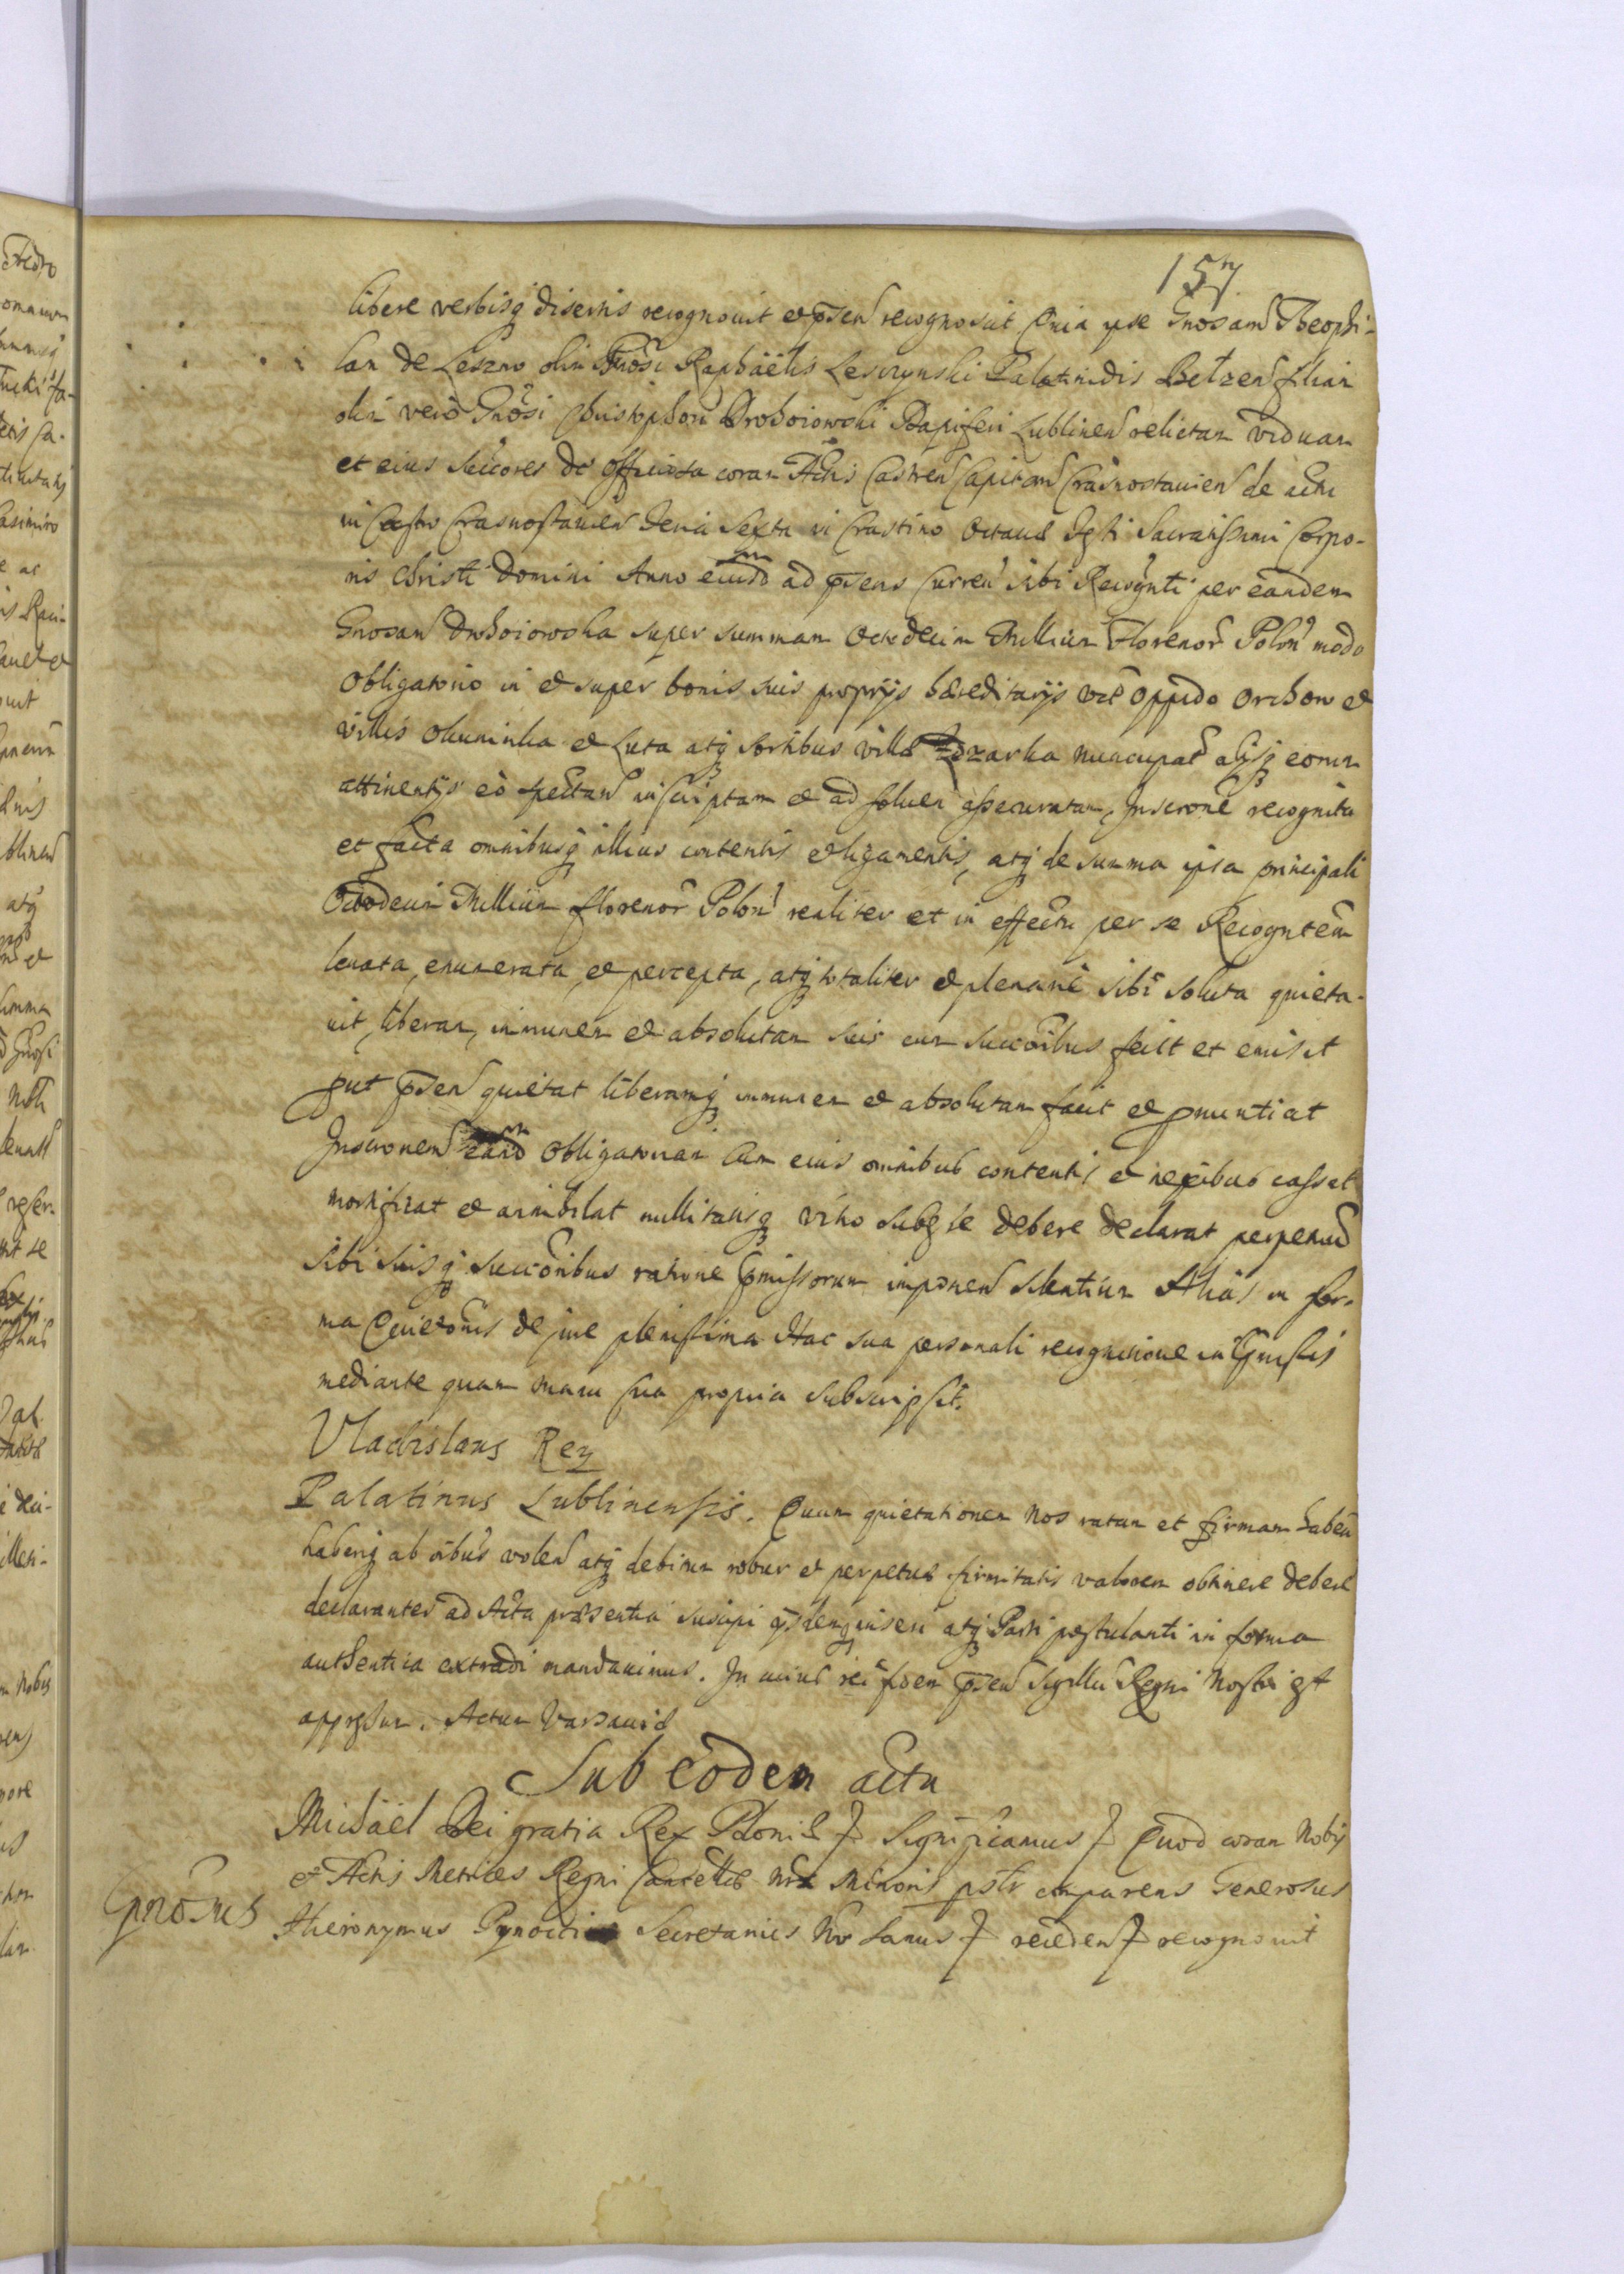 157
libere verbisq disertis recognovit et pñ recognoscit Quia ipse Gnosam Theophi-
lam de Leszno olim Gnosi Raphaëlis Lesczynski Palatinidis Belzen filiam
olim verò Gnosi Christophori Drohoiowski Dapiferi Lublinen relictam viduam
et eius succores de coram Actis Castren Capitan Crasnostavien de actu
in Castro Crasnostavien feria sexta in Crastino Octavæ Festi Sacratissimi Corpo-
ris Christi Domini Anno eiusd ad præsens curren sibi Recognti per eandem
Gnosam Drohoiowska super summam Octodecim Millium Florenor Polon modo
obligatorio in et super bonis suis proprijs hæreditarijs vt oppido Orchow et
villis Okuninka et Luta atq sortibus villæ Zdzarka nuncupat alijsq eorum
attinentijs eò spectan inscriptam et ad solven assecuratam, Inscrone recognita
et facta omnibusq illius contentis et ligamentis, atq de summa ipsa principali
Octodecim Millium florenor Polon realiter et in effectu per se Recogntem
levata, enumerata, et percepta, atq totaliter et plenariè sibi soluta quieta-
vit, liberam, immunem et absolutam suis cum succoribus fecit et emisit
put pñ quietat liberamq immunem et absolutam facit et pnuntiat
Inscronem eand obligatoriam cum eius omnibus contentis et nexibus cassat
mortificat et annihilat nullitatisq vitio subesse debere declarat perpetuũ
sibi suisq succoribus ratione pmissorum imponen silentium Aliàs in for-
ma Quietonis de jure plenissima Hac sua personali recognitione in pmissis
mediante quam manu sua propria subscripsit.
Vladislaus Rey
Palatinus Lublinensis. Quam quietationem Nos ratam et firmam haben
haberiq ab oibus volen atq debitum robur et perpetuæ firmitatis valorem obtinere debere
declarantes ad Acta præsentia suscipi ijsdemq inseri atq Parti postulanti in forma
authentica extradi mandavimus. In cuius rei fidem pñ sigillũ Regni Nostri est
appressum. Actum Varsaviæ
Sub eodem actu
Michaël Dei gratia Rex Poloniæ Significamus Quod coram Nobis
et Actis Metrices Regni Cancellæ Nræ Minoris psltr comparens Generosus
Gnosus
Hieronymus Secretarius Nr sanus receden recognovit